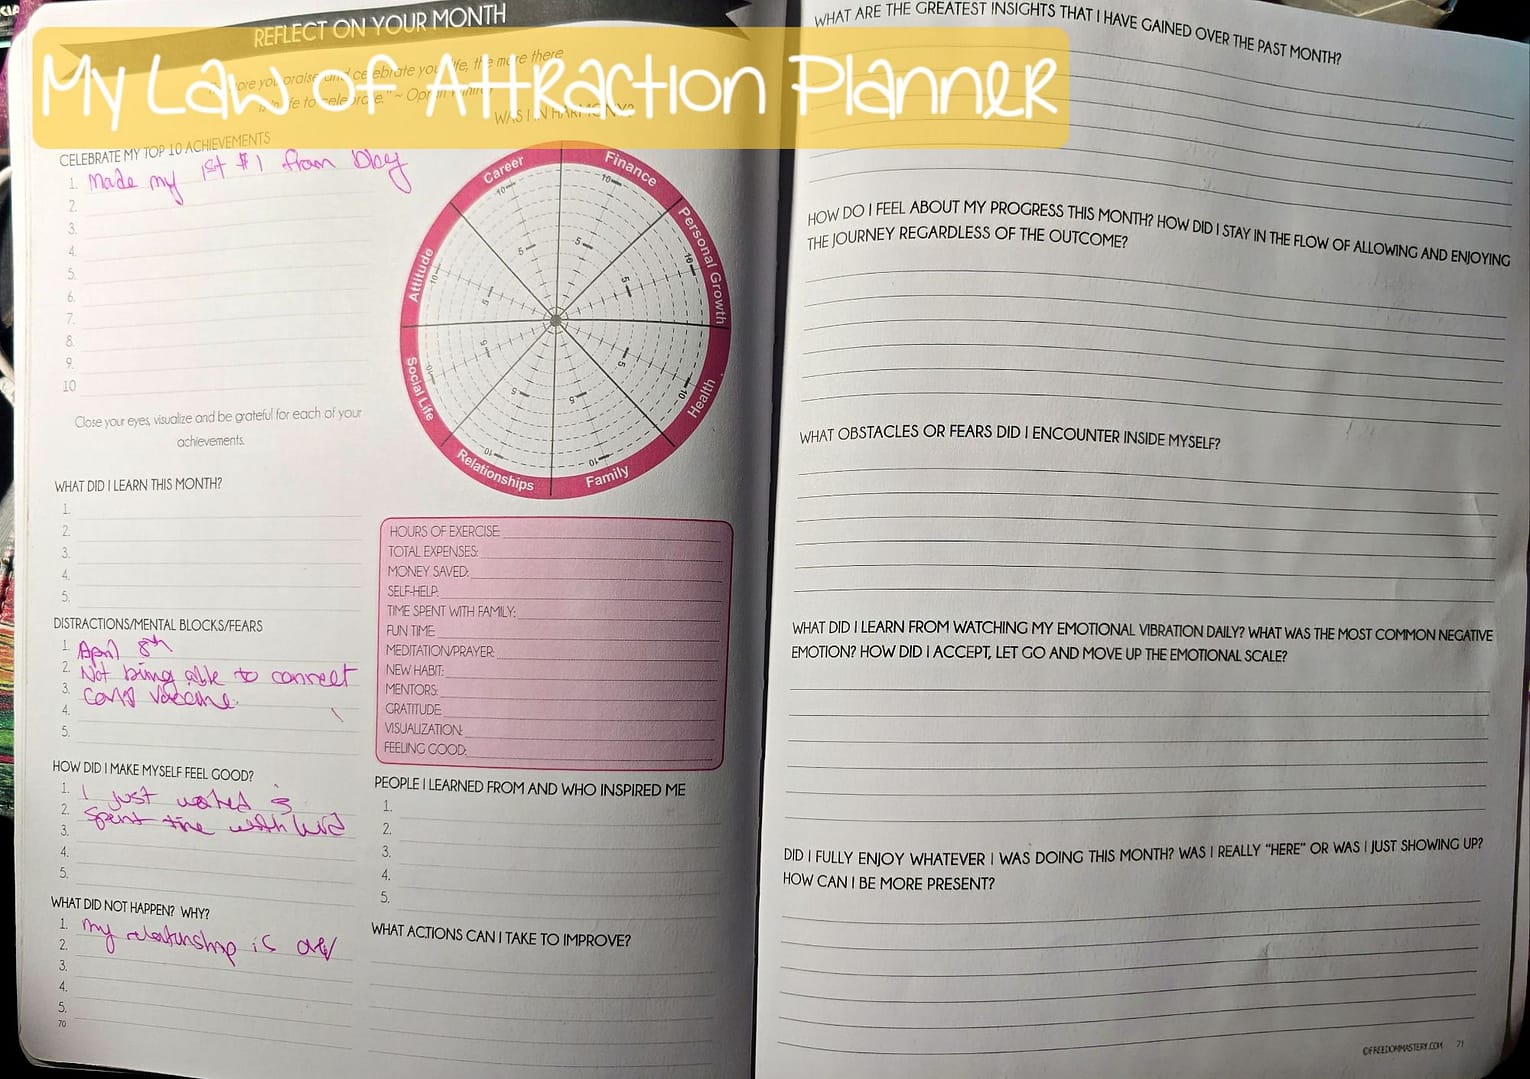 REFLECT ON YOUR MONTH
My Law of Attraction Planner
praise and celebrate your life, the more there
life to celebrate." ~ Oprah
WAS I IN HARMONY?
CELEBRATE MY TOP 10 ACHIEVEMENTS
1. Made my 1st #1 from
2.
3.
4.
5.
6.
7.
8.
9.
10
Close your eyes, visualize and be grateful for each of your
achievements.
Career
Finance
Personal Growth
Health
Family
Relationships
Social Life
Attitude
10
5
10
5
10
5
10
5
10
5
10
5
10
5
10
5
WHAT DID I LEARN THIS MONTH?
1.
2.
3.
4.
5.
DISTRACTIONS/MENTAL BLOCKS/FEARS
1. April 8th
2. Not being able to connect
3. Covid Vaccine
4.
5.
HOW DID I MAKE MYSELF FEEL GOOD?
1. I just waited &
2. Spent time with
3.
4.
5.
WHAT DID NOT HAPPEN? WHY?
1. My relationship is
2.
3.
4.
5.
70
HOURS OF EXERCISE:
TOTAL EXPENSES:
MONEY SAVED:
SELF-HELP:
TIME SPENT WITH FAMILY:
FUN TIME
MEDITATION/PRAYER:
NEW HABIT:
MENTORS:
GRATITUDE
VISUALIZATION:
FEELING GOOD:
PEOPLE I LEARNED FROM AND WHO INSPIRED ME
1.
2.
3.
4.
5.
WHAT ACTIONS CAN I TAKE TO IMPROVE?
WHAT ARE THE GREATEST INSIGHTS THAT I HAVE GAINED OVER THE PAST MONTH?
HOW DO I FEEL ABOUT MY PROGRESS THIS MONTH? HOW DID I STAY IN THE FLOW OF ALLOWING AND ENJOYING
THE JOURNEY REGARDLESS OF THE OUTCOME?
WHAT OBSTACLES OR FEARS DID I ENCOUNTER INSIDE MYSELF?
WHAT DID I LEARN FROM WATCHING MY EMOTIONAL VIBRATION DAILY? WHAT WAS THE MOST COMMON NEGATIVE
EMOTION? HOW DID I ACCEPT, LET GO AND MOVE UP THE EMOTIONAL SCALE?
DID I FULLY ENJOY WHATEVER I WAS DOING THIS MONTH? WAS I REALLY "HERE" OR WAS I JUST SHOWING UP?
HOW CAN I BE MORE PRESENT?
©FREEDOMMASTERY.COM 71